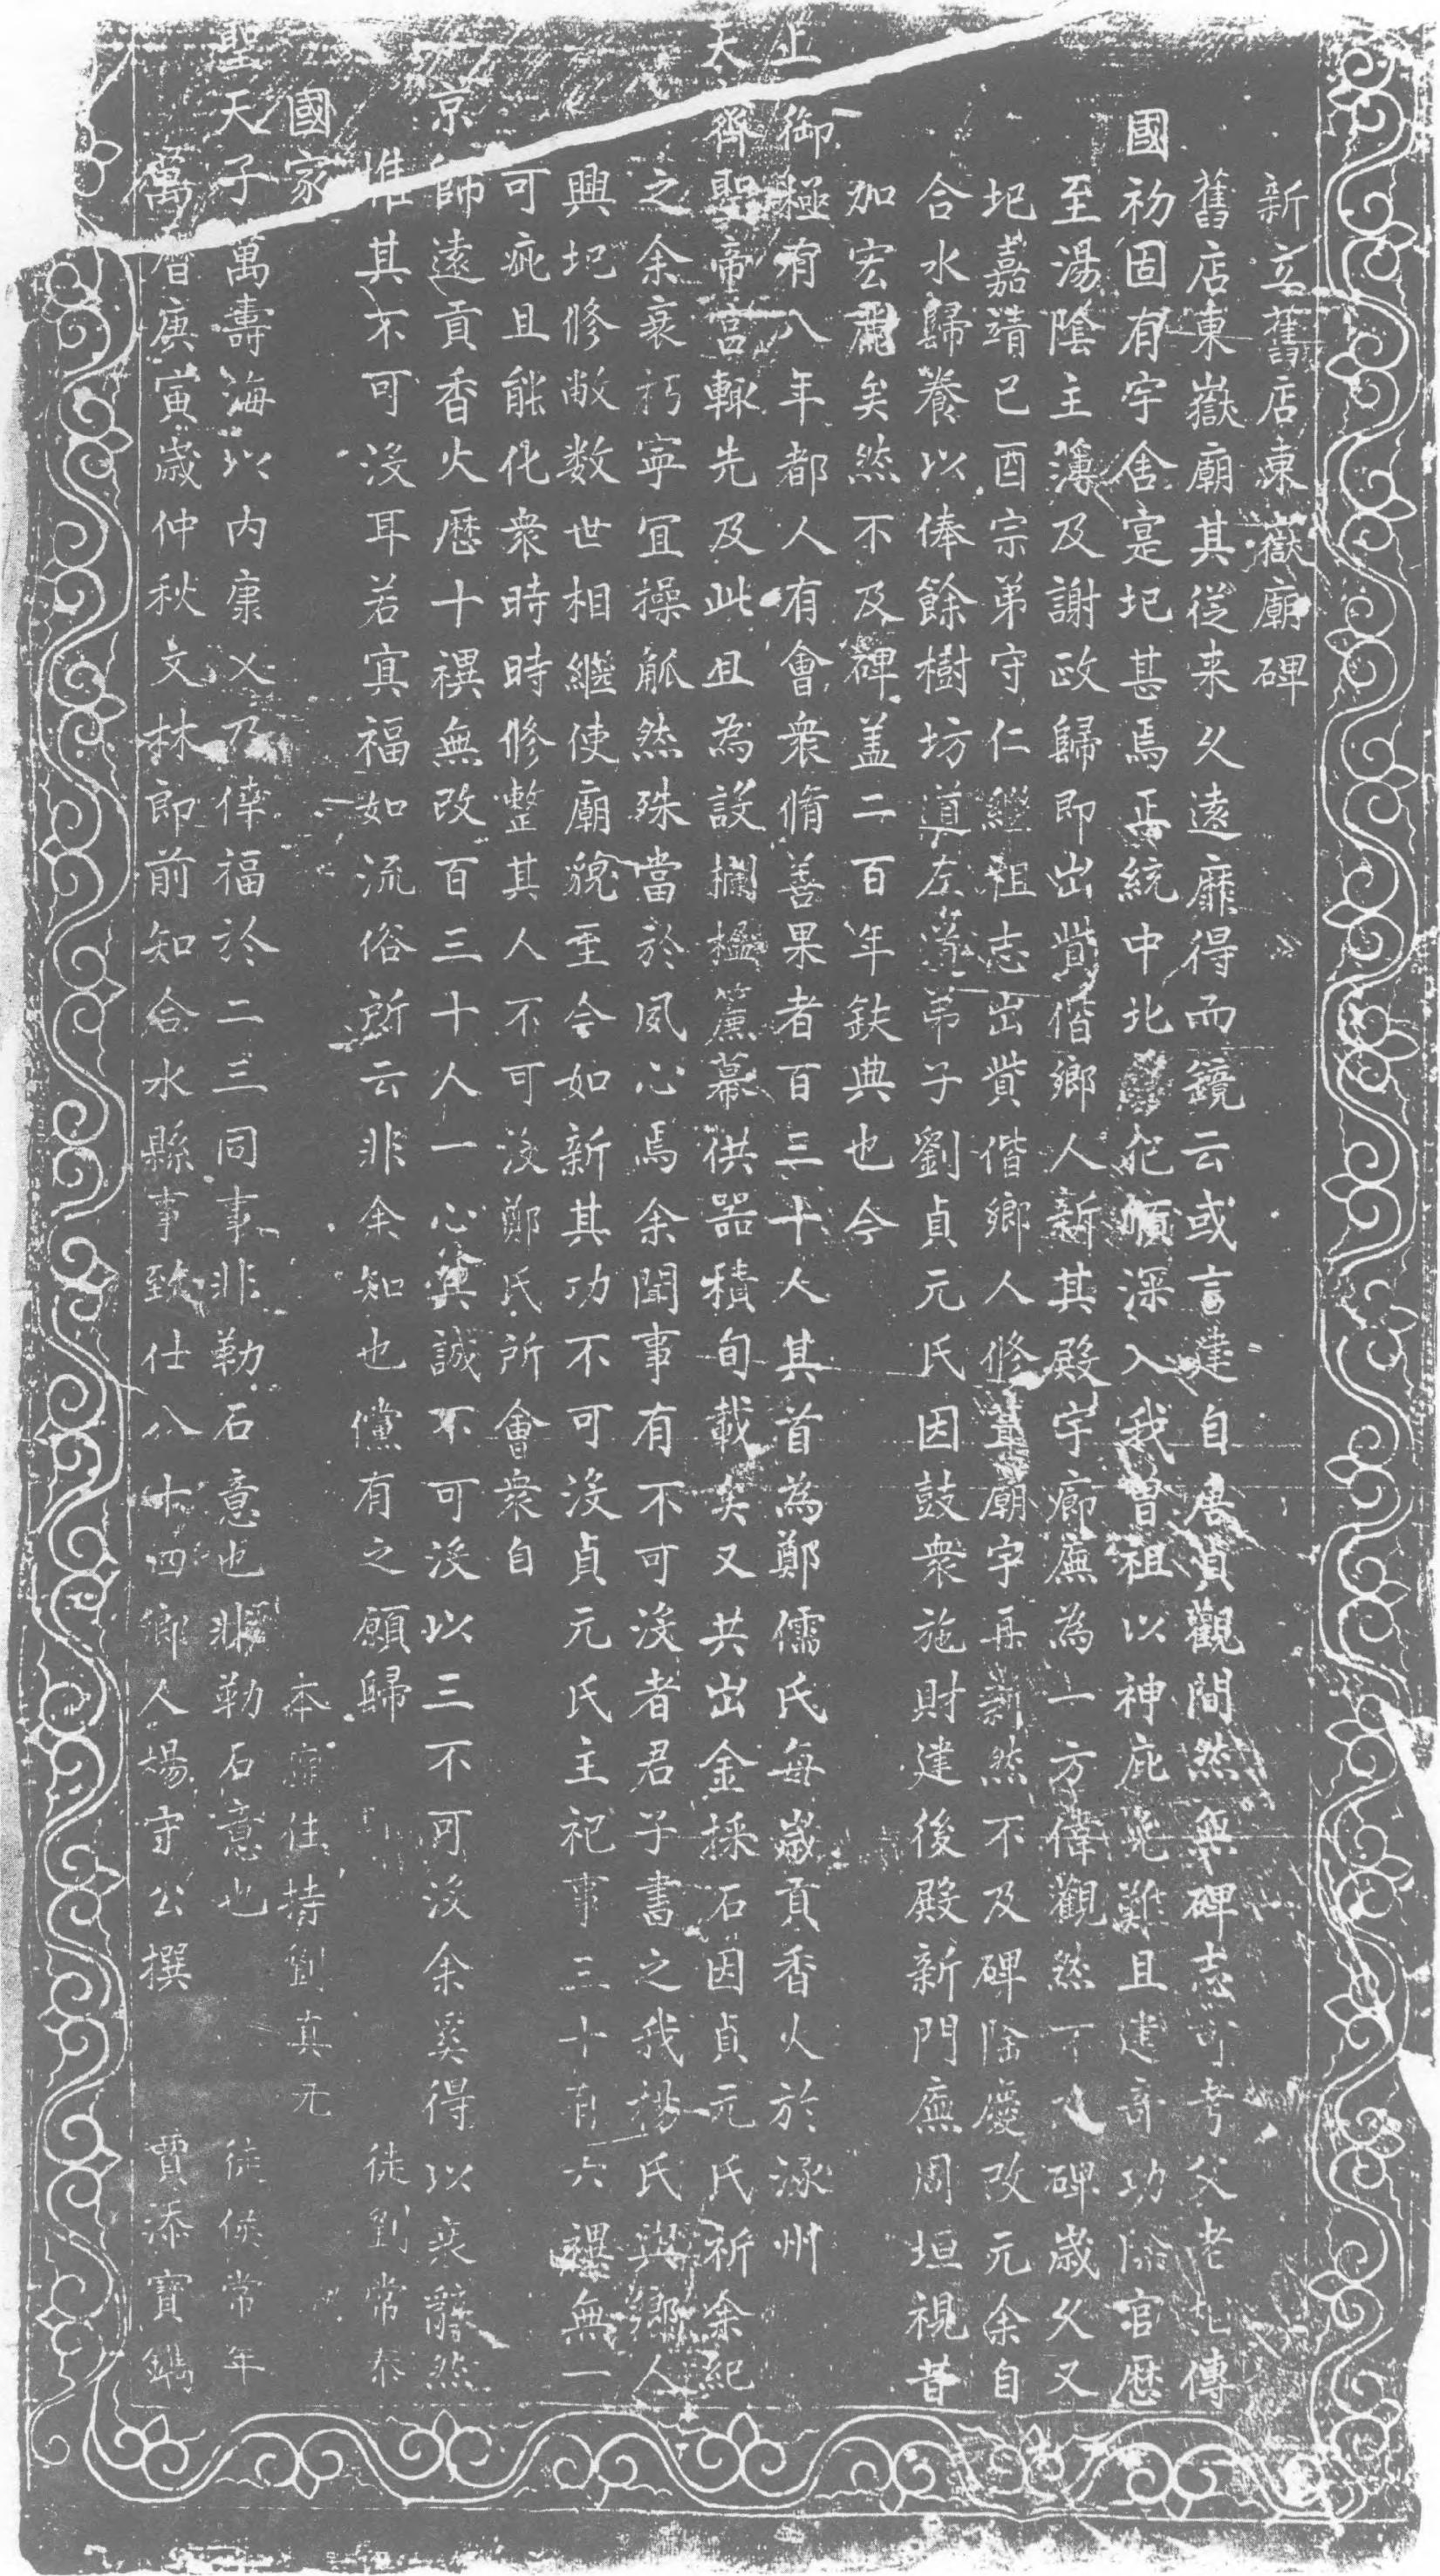 新立舊店東嶽廟碑
舊店東嶽廟其從来久遠靡得而鏡云或言建自唐貞觀間然無碑志可考父老相傳
國初固有宇舍寔圮甚焉正統中北犯順深入我曾祖以神庇免難且建奇功除官歷
至湯陰主簿及謝政歸即出貲偕鄉人新其殿宇廊廡為一方偉觀然不及碑歲久又
圮嘉靖己酉宗弟守仁繼祖志出貲偕鄉人修葺廟宇再新然不及碑隆慶改元余自
合水歸養以俸餘樹坊道左道弟子劉貞元氏因鼓衆施財建後殿新門廡周垣視昔
加宏麗矣然不及碑盖二百年缺典也今
上御極有八年都人有會衆脩善果者百三十人其首為鄭儒氏每歲貢香火於涿州
天齊聖帝宫輙先及此且為設欄楹簾幕供器積旬載矣又共出金採石因貞元氏祈余紀
之余衰朽寧宜操觚然殊當於夙心焉余聞事有不可沒者君子書之我楊氏與鄉人
興圮修敝数世相繼使廟貌至今如新其功不可沒貞元氏主祀事三十有六禩無一
可疵且能化衆時時修整其人不可沒鄭氏所會衆自
京師遠貢香火歷十禩無改百三十人一心其誠不可沒以三不可沒余奚得以衰辭然
惟其不可沒耳若寘福如流俗所云非余知也儻有之願歸 徒劉常泰
國家 本廟住持劉真元
聖天子萬壽海以内康乂乃倖福於二三同事非勒石意也非勒石意也 徒侯常年
萬曆庚寅歲仲秋文林郎前知合水縣事致仕八十四鄉人場守公撰 賈添寶鐫